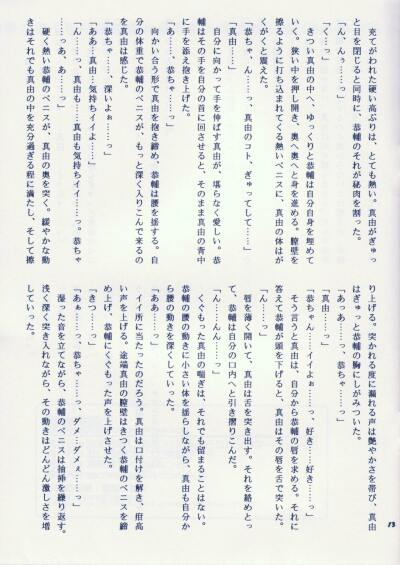 充てがわれた硬い高ぶりは、とても熱い。真由がぎゅっ
と目を閉じると同時に、恭輔のそれが秘肉を割った。
「ん、んぅ……っ」
「く…っ」
きつい真由の中へ、ゆっくりと恭輔は自分自身を埋めて
いく。狭い中を押し開き、奥へ奥へと身を進める。膣壁を
擦るように打ち込まれてくる熱いペニスに、真由の体はが
くがくと震えた。
「恭ちゃ、ん……っ、真由のコト、ぎゅってして……」
「真由……」
自分に向かって手を伸ばす真由が、堪らなく愛しい。恭
輔はその手を自分の首に回させると、そのまま真由の背中
に手を添え抱き上げた。
「あ……、恭ちゃ……っ」
向かい合う形で真由を抱き締め、恭輔は腰を揺する。自
分の体重で恭輔のペニスが、もっと深く入りこんで来るの
を真由は感じた。
「恭ちゃ……、深いよぉ……っ」
「ああ…真由…気持ちイイよ……」
「ん……っ、真由も……真由も気持ちイイ……っ。恭ちゃ
……っあ、あ……っ」
硬く熱い恭輔のペニスが、真由の奥を突く。緩やかな動
きはそれでも真由の中を充分過ぎる程に満たし、そして擦
り上げる。突かれる度に漏れる声は艶やかさを帯び、真由
はぎゅっと恭輔の胸にしがみついた。
「あっあ……っ、恭ちゃ……っ」
「真由……」
「恭ちゃん……イイよぉ……っ、好き……好き……っ」
そう言うと真由は、自分から恭輔の唇を求める。それに
答えて恭輔が頭を下げると、真由はその唇を舌で突いた。
「ん……っ」
唇を薄く開いて、真由は舌を突き出す。それを絡めとっ
て、恭輔は自分の口内へと引き摺りこんだ。
「ん……んん……っ」
くぐもった真由の喘ぎは、それでも留まることはない。
恭輔の腰の動きに小さい体を揺らしながら、真由も自分か
ら腰の動きを深くしていった。
「ああ……っ」
イイ所に当たったのだろう。真由は口付けを解き、疳高
い声を上げる。途端真由の膣壁はきつく恭輔のペニスを締
め上げ、恭輔にくぐもった声を上げさせた。
「きつ……っ」
「あぁ……っ、恭ちゃ……っ、ダメ……ダメェ……っ」
湿った音を立てながら、恭輔のペニスは抽挿を繰り返す。
浅く深く突き入れながら、その動きはどんどん激しさを増
していった。
13